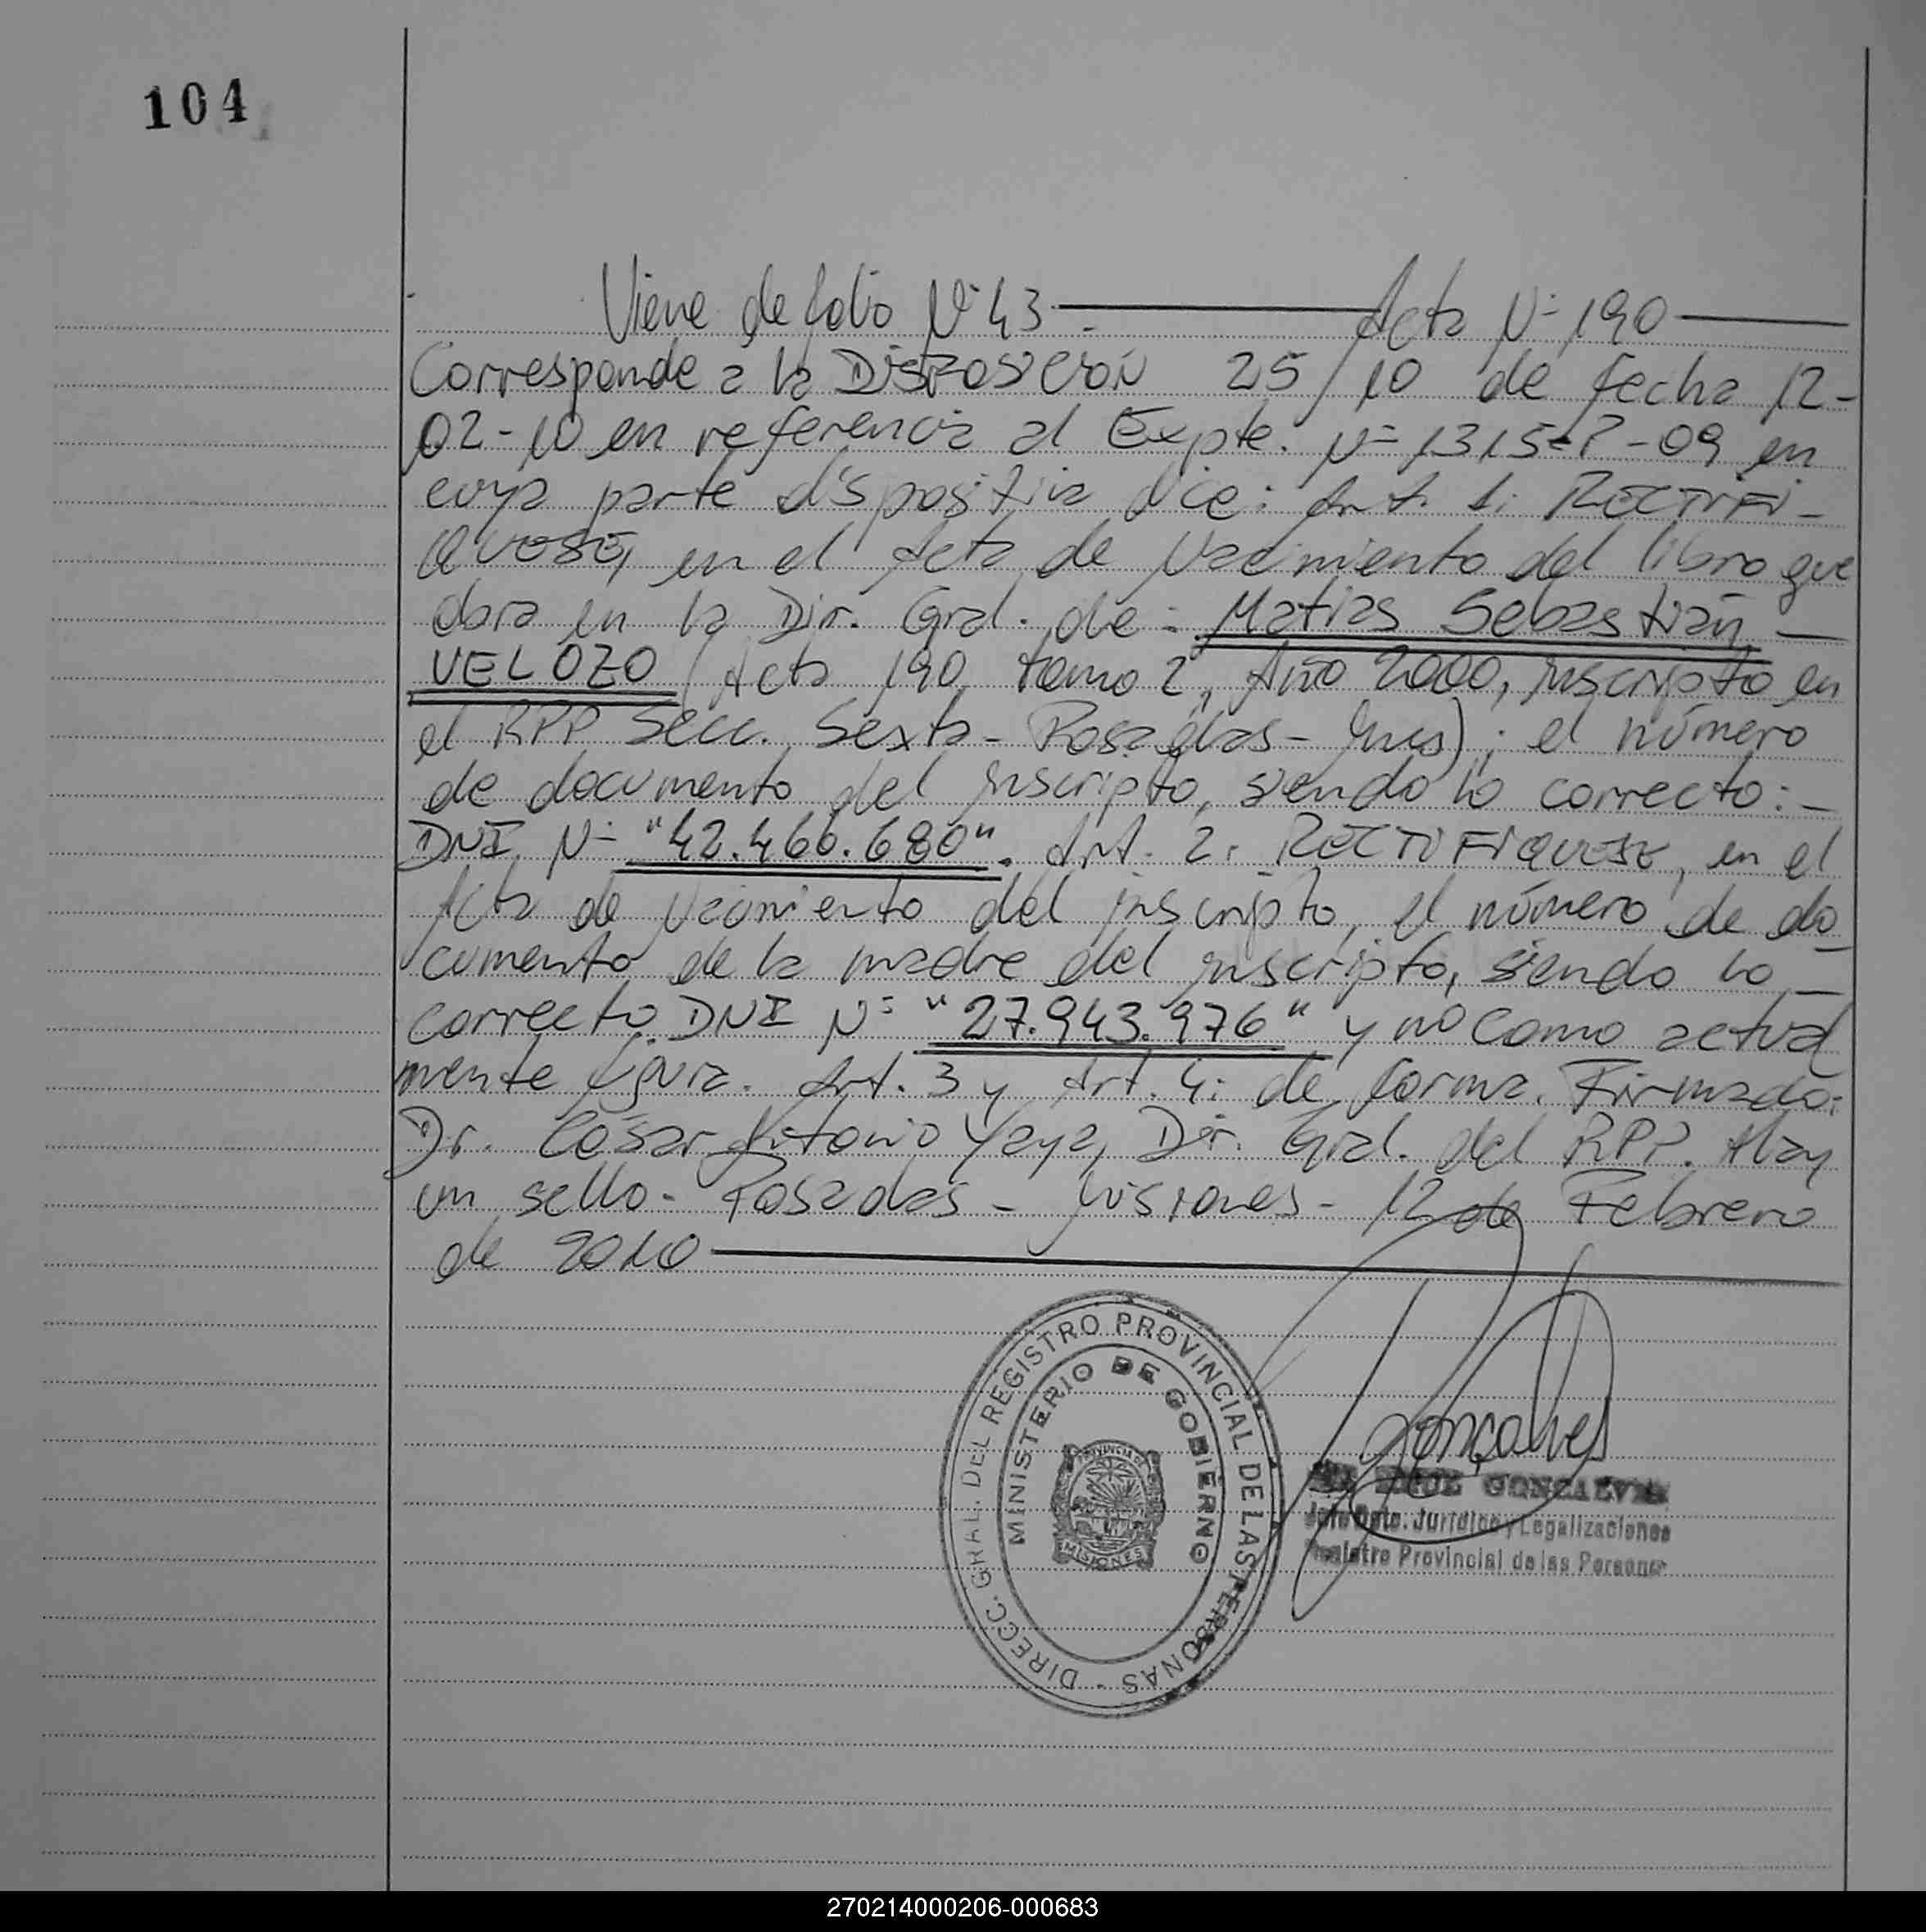 104
Viene de folio Nº 43 — Acta Nº 190 —
Corresponde a la DISPOSICIÓN 25/10 de fecha 12-
02-10 en referencia al Expte. Nº 1315-P-09 en
cuya parte dispositiva dice: Art. 1: RECTIFI-
QUESE, en el Acta de Nacimiento del libro que
obra en la Dir. Gral. de: Matias Sebastián —
VELOZO (Acta 190, tomo 2, Año 2000, inscripto en
el RPP Secc. Sexta - Posadas - Mnes); el número
de documento del inscripto, siendo lo correcto: -
DNI Nº "42.466.680". Art. 2: RECTIFIQUESE, en el
Acta de Nacimiento del inscripto, el número de do-
cumento de la madre del inscripto, siendo lo -
correcto DNI Nº "27.943.976" y no como actual
mente figura. Art. 3 y Art. 4: de forma. Firmado:
Dr. César Antonio Yaya, Dir. Gral. del RPP. Hay
un sello - Posadas - Misiones - 12 de Febrero
de 2010
DIRECC. GRAL. DEL REGISTRO PROVINCIAL DE LAS PERSONAS -
MINISTERIO DE GOBIERNO
PROVINCIA DE
MISIONES
Gonçalves
GONCALVES
Jefe Dpto. Jurídico y Legalizaciones
Registro Provincial de las Personas
270214000206-000683